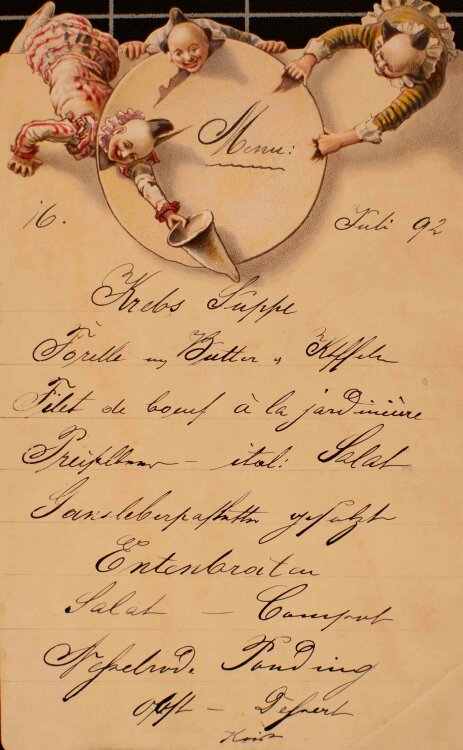 Menu:
16. Juli 92
Krebs Suppe
Forelle m Butter u Koffeln
Filet de boeuf à la jardinière
Preißelbeer – ital: Salat
Gansleberpastetten gesulzt
Entenbraten
Salat – Compot
Nesselrode Pouding
Obst – Dessert